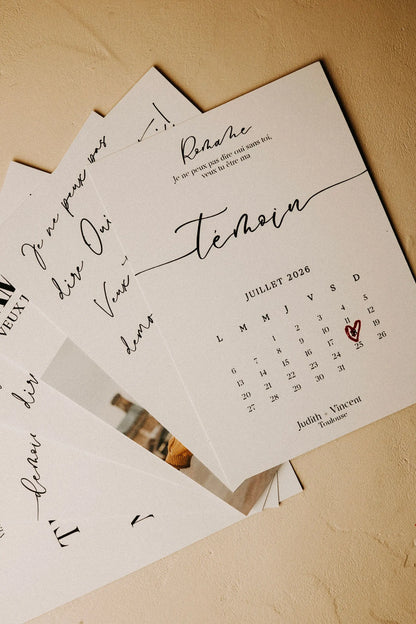 Romane
Je ne peux pas dire oui sans toi,
veux tu être ma
Témoin
JUILLET 2026
L M M J V S D
1 2 3 4 5
6 7 8 9 10 11 12
13 14 15 16 17 19
20 21 22 23 24 25 26
27 28 29 30 31
Judith + Vincent
Toulouse
Je ne peux pas
dire Oui
Veux
demo
VEUX
dir
demoi
T